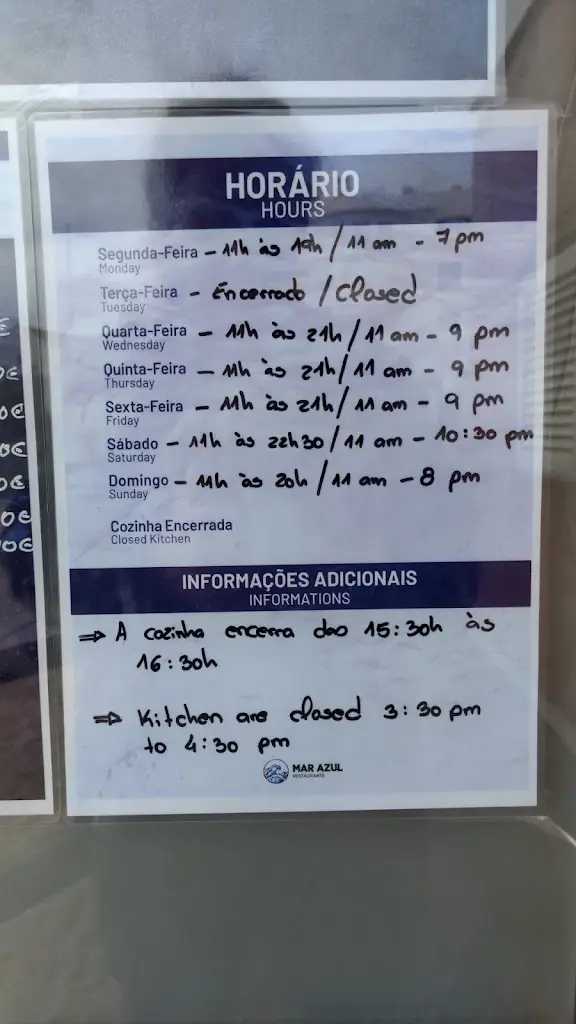 HORÁRIO
HOURS
Segunda-Feira - 11h às 19h / 11 am - 7 pm
Monday
Terça-Feira - Encerrado / Closed
Tuesday
Quarta-Feira - 11h às 21h / 11 am - 9 pm
Wednesday
Quinta-Feira - 11h às 21h / 11 am - 9 pm
Thursday
Sexta-Feira - 11h às 21h / 11 am - 9 pm
Friday
Sábado - 11h às 22h30 / 11 am - 10:30 pm
Saturday
Domingo - 11h às 20h / 11 am - 8 pm
Sunday
Cozinha Encerrada
Closed Kitchen
INFORMAÇÕES ADICIONAIS
INFORMATIONS
⇒ A cozinha encerra das 15:30h às
16:30h
⇒ Kitchen are closed 3:30 pm
to 4:30 pm
MAR AZUL
RESTAURANTE